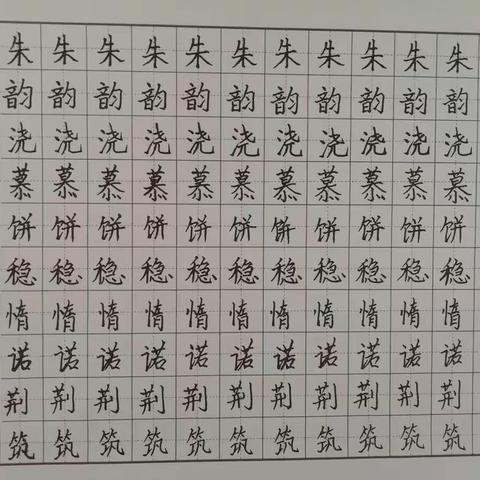 朱朱朱朱朱朱朱朱朱朱朱
韵韵韵韵韵韵韵韵韵韵韵
浇浇浇浇浇浇浇浇浇浇浇
慕慕慕慕慕慕慕慕慕慕慕
饼饼饼饼饼饼饼饼饼饼饼
稳稳稳稳稳稳稳稳稳稳稳
惰惰惰惰惰惰惰惰惰惰惰
诺诺诺诺诺诺诺诺诺诺诺
荆荆荆荆荆荆荆荆荆荆荆
筑筑筑筑筑筑筑筑筑筑筑